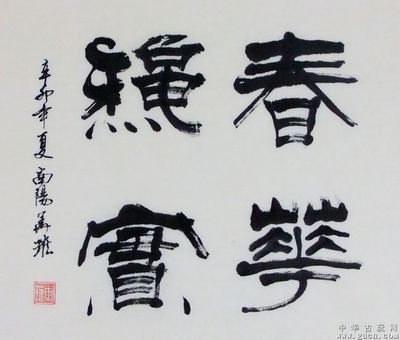 春華
穐實
辛卯年夏南陽
中华古玩网
www.gucn.com